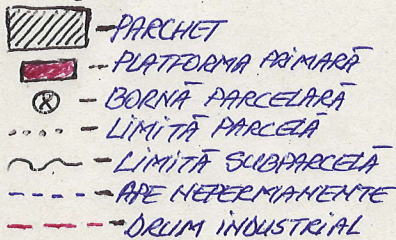 - PARCHET
- PLATFORMA PRIMARĂ
- BORNĂ PARCELARĂ
- LIMITĂ PARCELĂ
- LIMITĂ SUBPARCELĂ
- APE NEPERMANENTE
- DRUM INDUSTRIAL